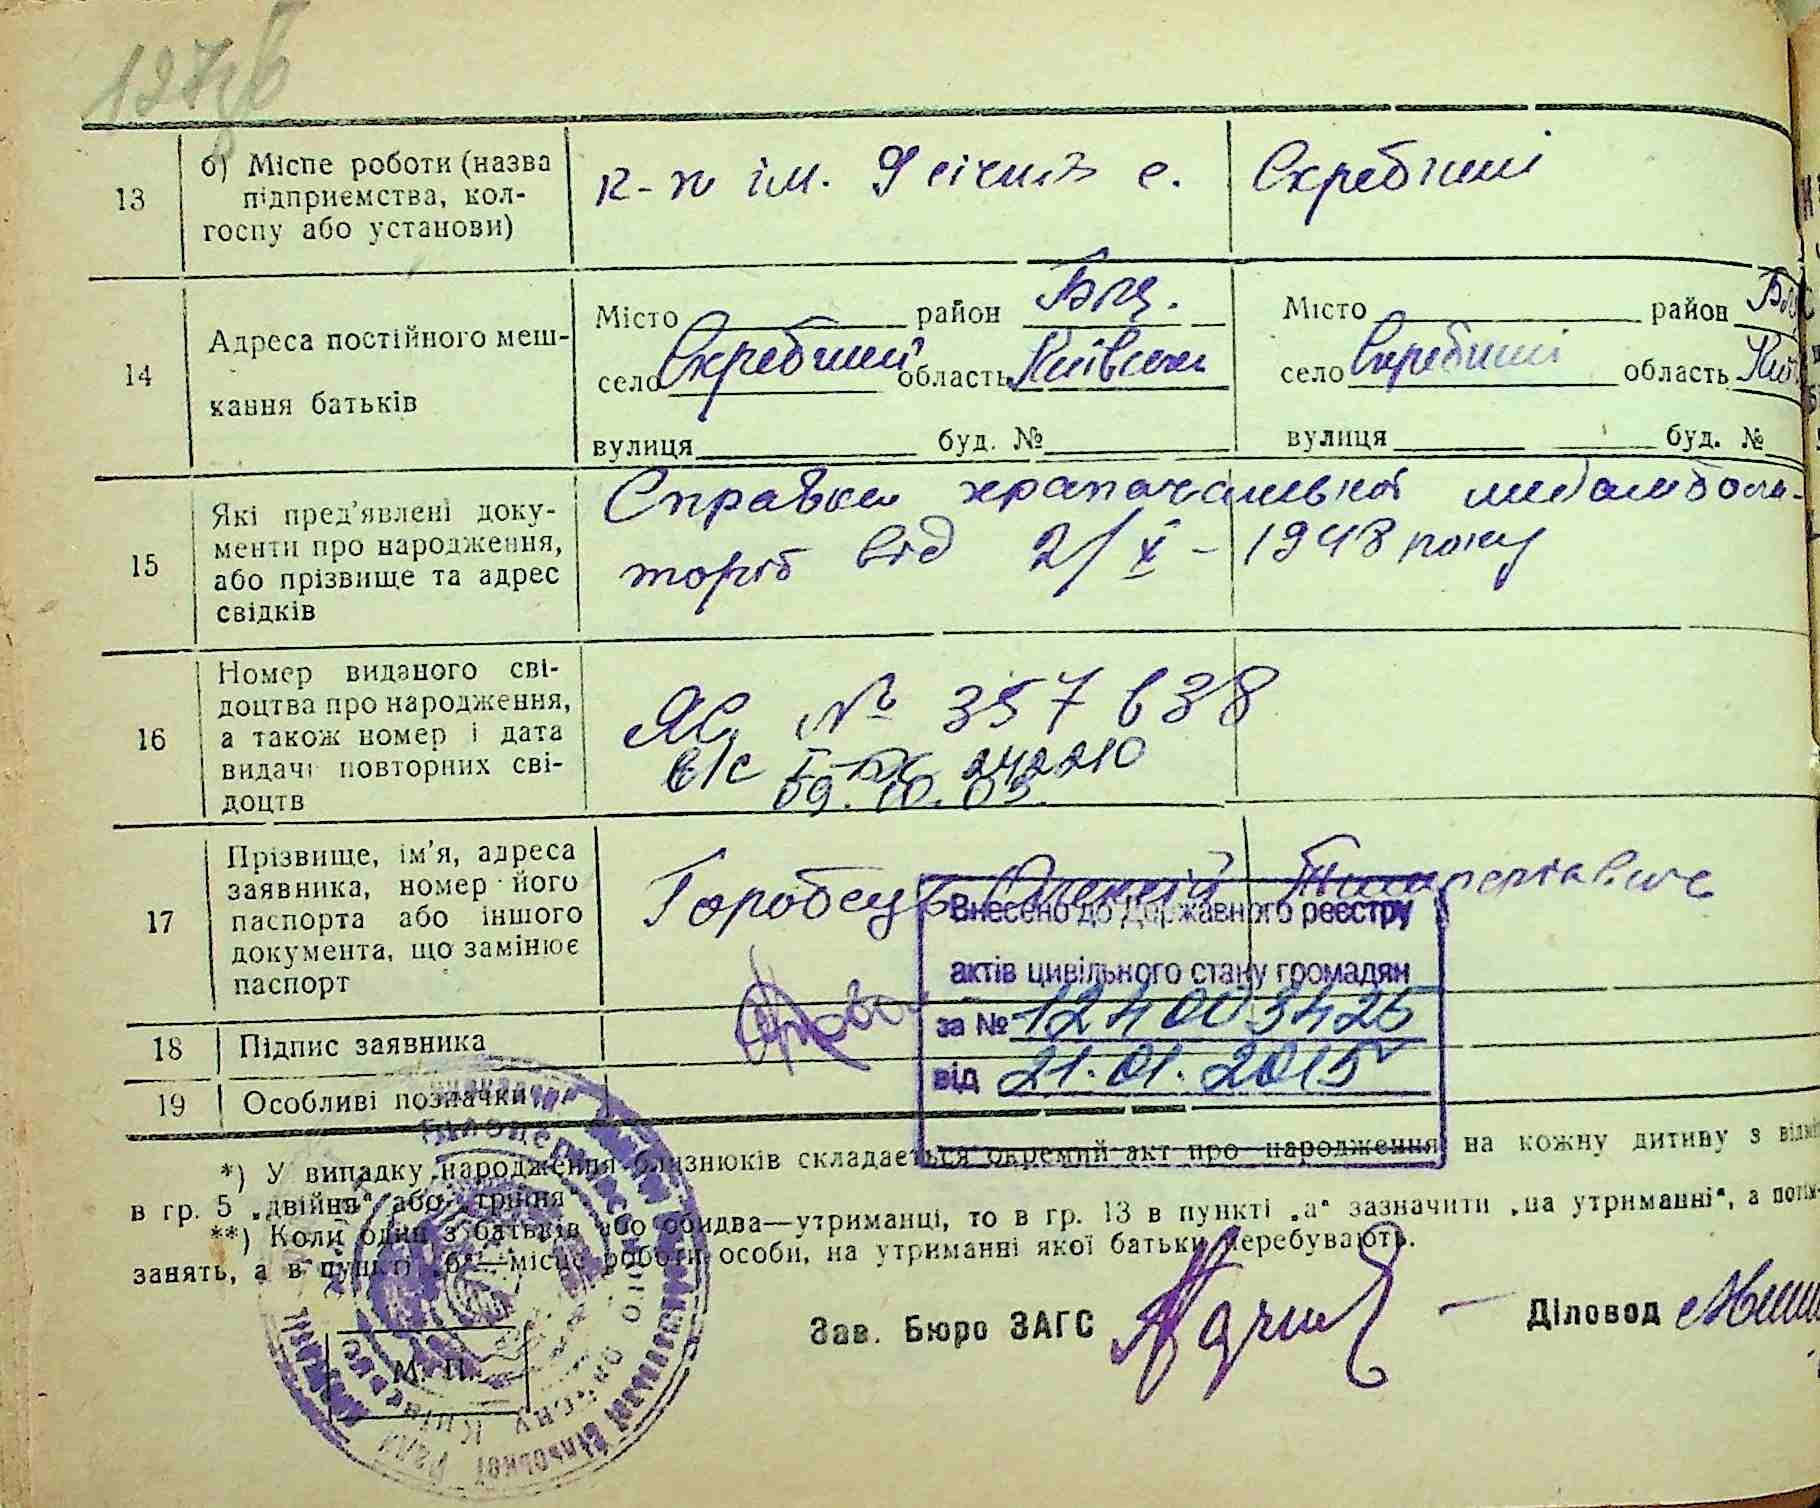 127зв
13
б) Місце роботи (назва
підприємства, кол-
госпу або установи)
к-п ім. 9 січня с. Скребиші
14
Адреса постійного меш-
кання батьків
Місто район Бщ.
село Скребиші область Київська
вулиця буд. №
Місто район
село Скребиші область
вулиця буд. №
15
Які пред’явлені доку-
менти про народження,
або прізвище та адрес
свідків
Справка
від 2/X - 1948 року
16
Номер виданого сві-
доцтва про народження,
а також номер і дата
видачі повторних сві-
доцтв
ЯС № 357638
в/с 242210
09.10.03
17
Прізвище, ім’я, адреса
заявника, номер його
паспорта або іншого
документа, що замінює
паспорт
Горобець Олексій
Внесено до державного реєстру
актів цивільного стану громадян
за № 124003425
від 21.01.2015
18
Підпис заявника
19
Особливі позначки
*) У випадку народження близнюків складається окремий акт про народження на кожну дитину з
в гр. 5 „двійня“ або „трійня“
**) Коли один з батьків або обидва—утриманці, то в гр. 13 в пункті „а“ зазначити „на утриманні“, а
занять, а в пункті „б“—місце роботи особи, на утриманні якої батьки перебувають.
Зав. Бюро ЗАГС
Діловод
М. П.